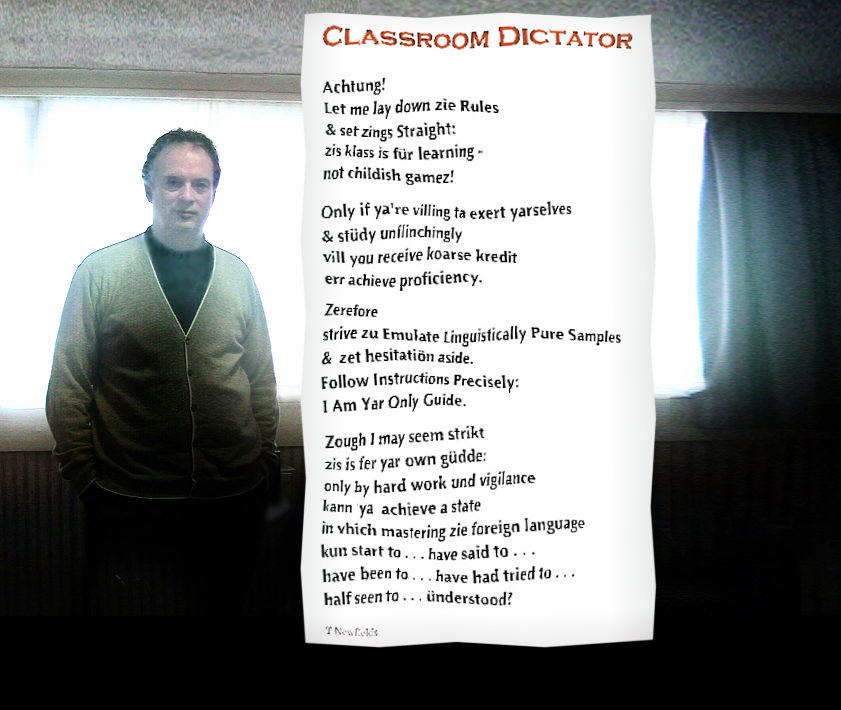 CLASSROOM DICTATOR
Achtung!
Let me lay down zie Rules
& set zings Straight:
zis klass is für learning -
not childish gamez!
Only if ya're villing ta exert yarselves
& stüdy unflinchingly
vill you receive koarse kredit
err achieve proficiency.
Zerefore
strive zu Emulate Linguistically Pure Samples
& zet hesitatiön aside.
Follow Instructions Precisely:
I Am Yar Only Guide.
Zough I may seem strikt
zis is fer yar own güdde:
only by hard work und vigilance
kann ya achieve a state
in vhich mastering zie foreign language
kun start to . . . have said to . . .
have been to . . . have had tried to . . .
half seen to . . . ünderstood?
T Newfields